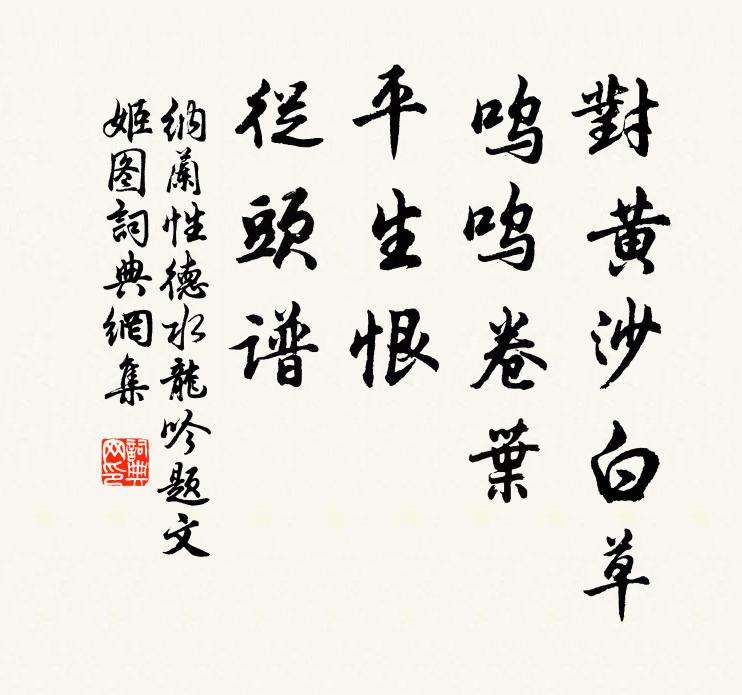 對黃沙白草
嗚嗚卷葉
平生恨
從頭譜
納蘭性德水龍吟題文
姬图詞典網集
詞典
网印